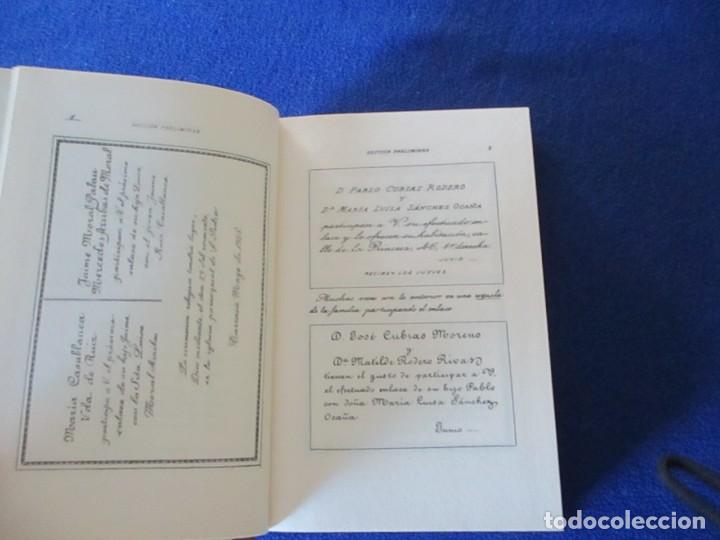 SECCION PRELIMINAR
Jaime Moral Palau
Mercedes Arribas de Moral
participan á V. el próximo
enlace de su hija Luisa
con el joven Jaime
Ruiz Casablanca
María Casablanca
Vda. de Ruiz
participa á V. el próximo
enlace de su hijo Jaime
con la Srta. Luisa
Moral Arribas
La ceremonia religiosa tendrá lugar,
Dios mediante, el día 27 del corriente,
en la iglesia parroquial de S. Pedro
Mayo de
SECCION PRELIMINAR
D. PABLO CUBIAS RODERO
Y
Dª MARÍA LUISA SÁNCHEZ OCAÑA
participan á V. su efectuado en-
lace y le ofrecen su habitación, ca-
lle de la Princesa, 46, 4º derecha
JUNIO
RECIBEN LOS JUEVES
Muchas veces con la anterior va una esquela
de la familia participando el enlace
D. José Cubias Moreno
y
Dª Matilde Rodero Rivas
tienen el gusto de participar á V.
el efectuado enlace de su hijo Pablo
con doña María Luisa Sánchez
Ocaña
Junio
todocoleccion